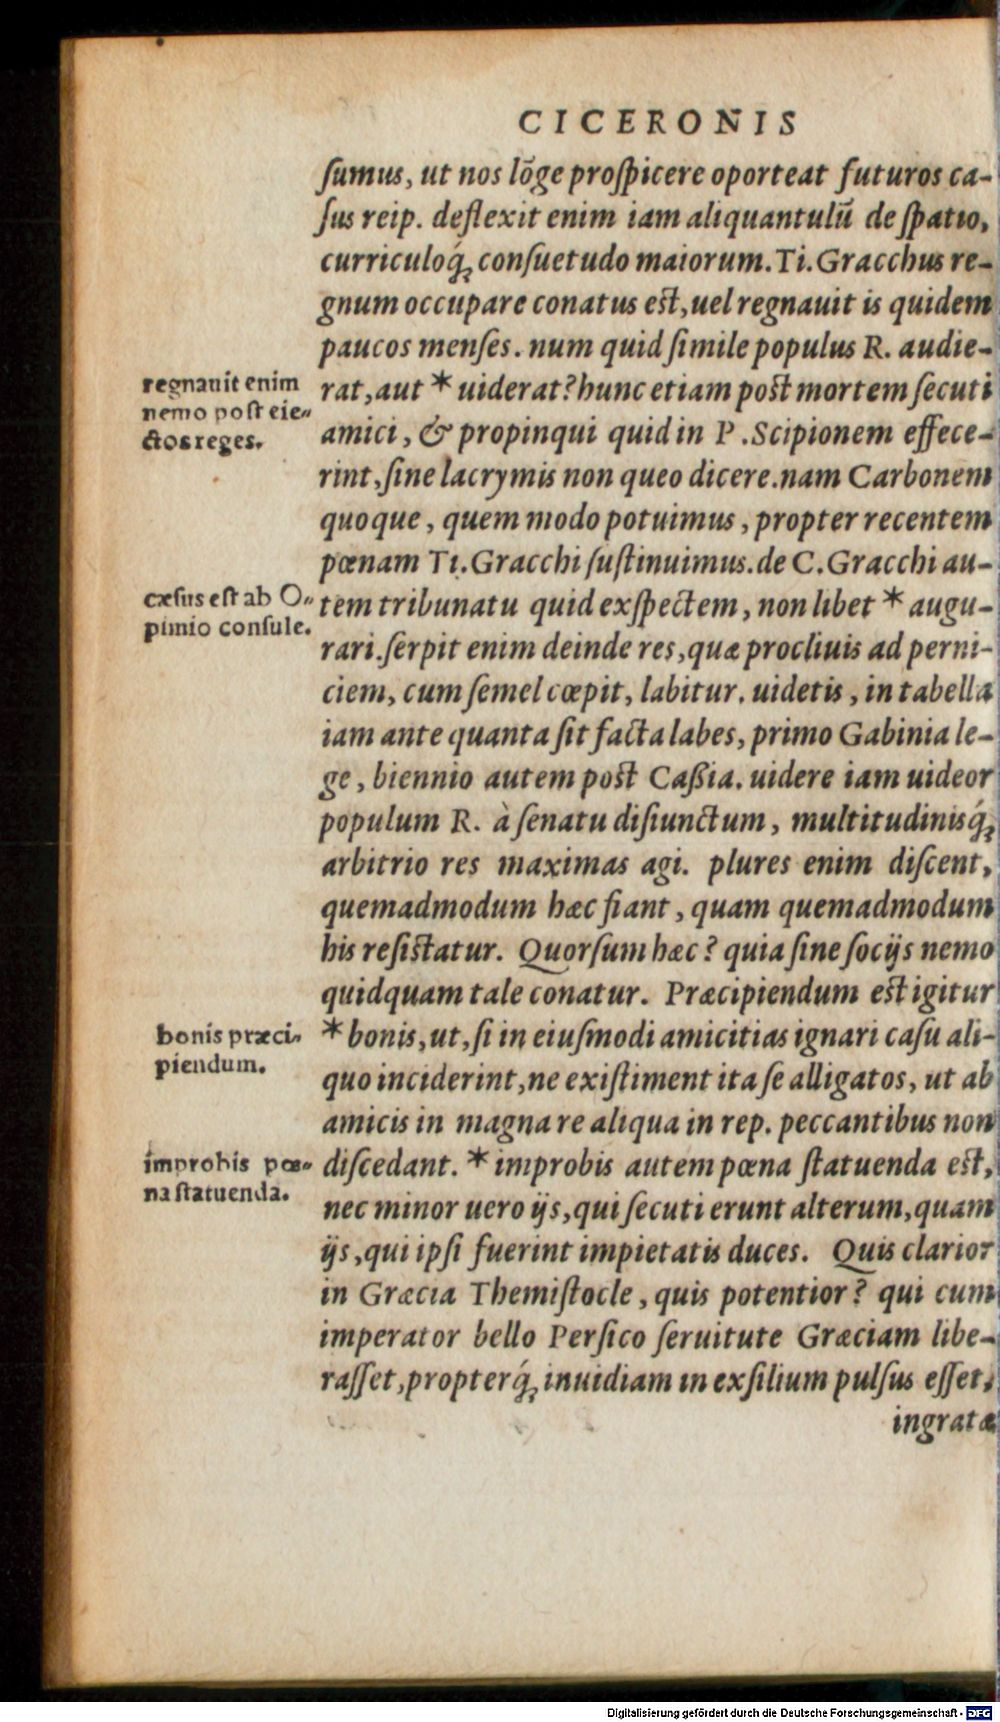 CICERONIS
ſumus, ut nos lõge proſpicere oporteat futuros ca-
ſus reip. deflexit enim iam aliquantulũ de ſpatio,
curriculoq́; conſuetudo maiorum. Ti. Gracchus re-
gnum occupare conatus eſt, uel regnauit is quidem
paucos menſes. num quid ſimile populus R. audie-
regnauit enim
nemo poſt eie-
ctos reges.
rat, aut * uiderat? hunc etiam poſt mortem ſecuti
amici, & propinqui quid in P. Scipionem effece-
rint, ſine lacrymis non queo dicere. nam Carbonem
quoque, quem modo potuimus, propter recentem
pœnam Ti. Gracchi ſuſtinuimus. de C. Gracchi au-
cæſus eſt ab O-
pimio conſule.
tem tribunatu quid exſpectem, non libet * augu-
rari. ſerpit enim deinde res, quæ procliuis ad perni-
ciem, cum ſemel cœpit, labitur. uidetis, in tabella
iam ante quanta ſit facta labes, primo Gabinia le-
ge, biennio autem poſt Caßia. uidere iam uideor
populum R. à ſenatu diſiunctum, multitudinisq́;
arbitrio res maximas agi. plures enim diſcent,
quemadmodum hæc fiant, quam quemadmodum
his reſiſtatur. Quorſum hæc? quia ſine ſocijs nemo
quidquam tale conatur. Præcipiendum eſt igitur
bonis præci-
piendum.
* bonis, ut, ſi in eiuſmodi amicitias ignari caſu ali-
quo inciderint, ne exiſtiment ita ſe alligatos, ut ab
amicis in magna re aliqua in rep. peccantibus non
improbis pœ-
na ſtatuenda.
diſcedant. * improbis autem pœna ſtatuenda eſt,
nec minor uero ijs, qui ſecuti erunt alterum, quam
ijs, qui ipſi fuerint impietatis duces. Quis clarior
in Græcia Themiſtocle, quis potentior? qui cum
imperator bello Perſico ſeruitute Græciam libe-
raſſet, propterq́; inuidiam in exſilium pulſus eſſet,
ingratæ
Digitalisierung gefördert durch die Deutsche Forschungsgemeinschaft - DFG